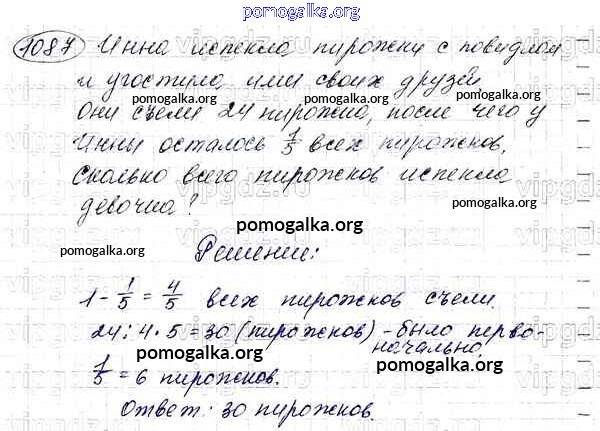 pomogalka.org
1087 Инна испекла пирожки с повидлом
и угостила ими своих друзей
pomogalka.org pomogalka.org
Они съели 24 пирожка, после чего у
Инны осталось 1/5 всех пирожков.
Сколько всего пирожков испекла
pomogalka.org
девочка?
pomogalka.org
pomogalka.org pomogalka.org
Решение:
1 - 1/5 = 4/5 всех пирожков съели.
24 : 4 · 5 = 30 (пирожков) - было перво-
начально.
pomogalka.org pomogalka.org
1/5 = 6 пирожков.
pomogalka.org
Ответ: 30 пирожков.